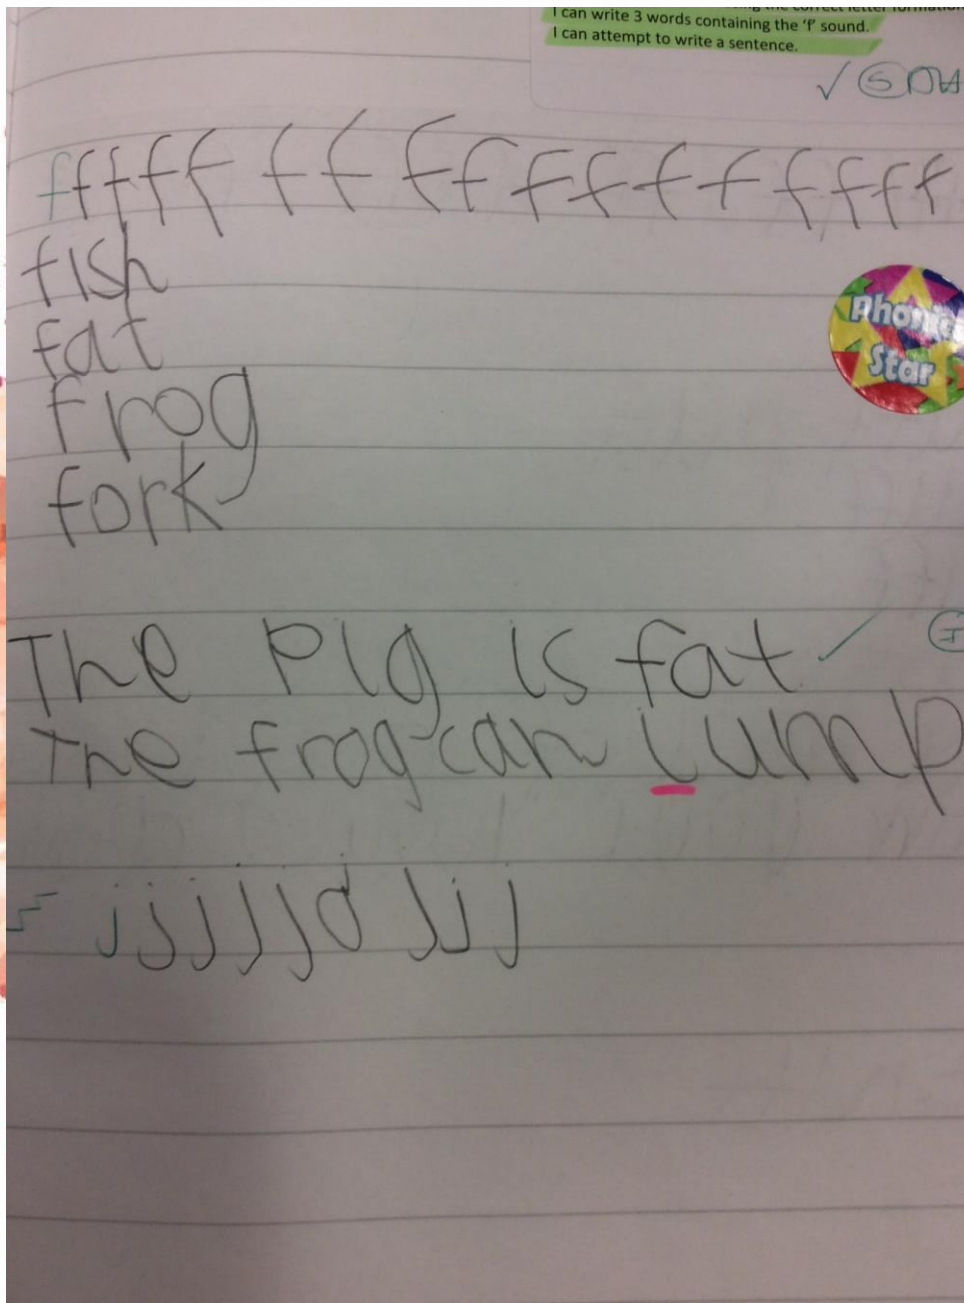 I can write 3 words containing the 'f' sound.
I can attempt to write a sentence.
f f f f f f f f f f f f f f f f f
fish
fat
frog
fork
Phonics
Star
The Pig is fat
The frog can lump
j j j j j j d j j j